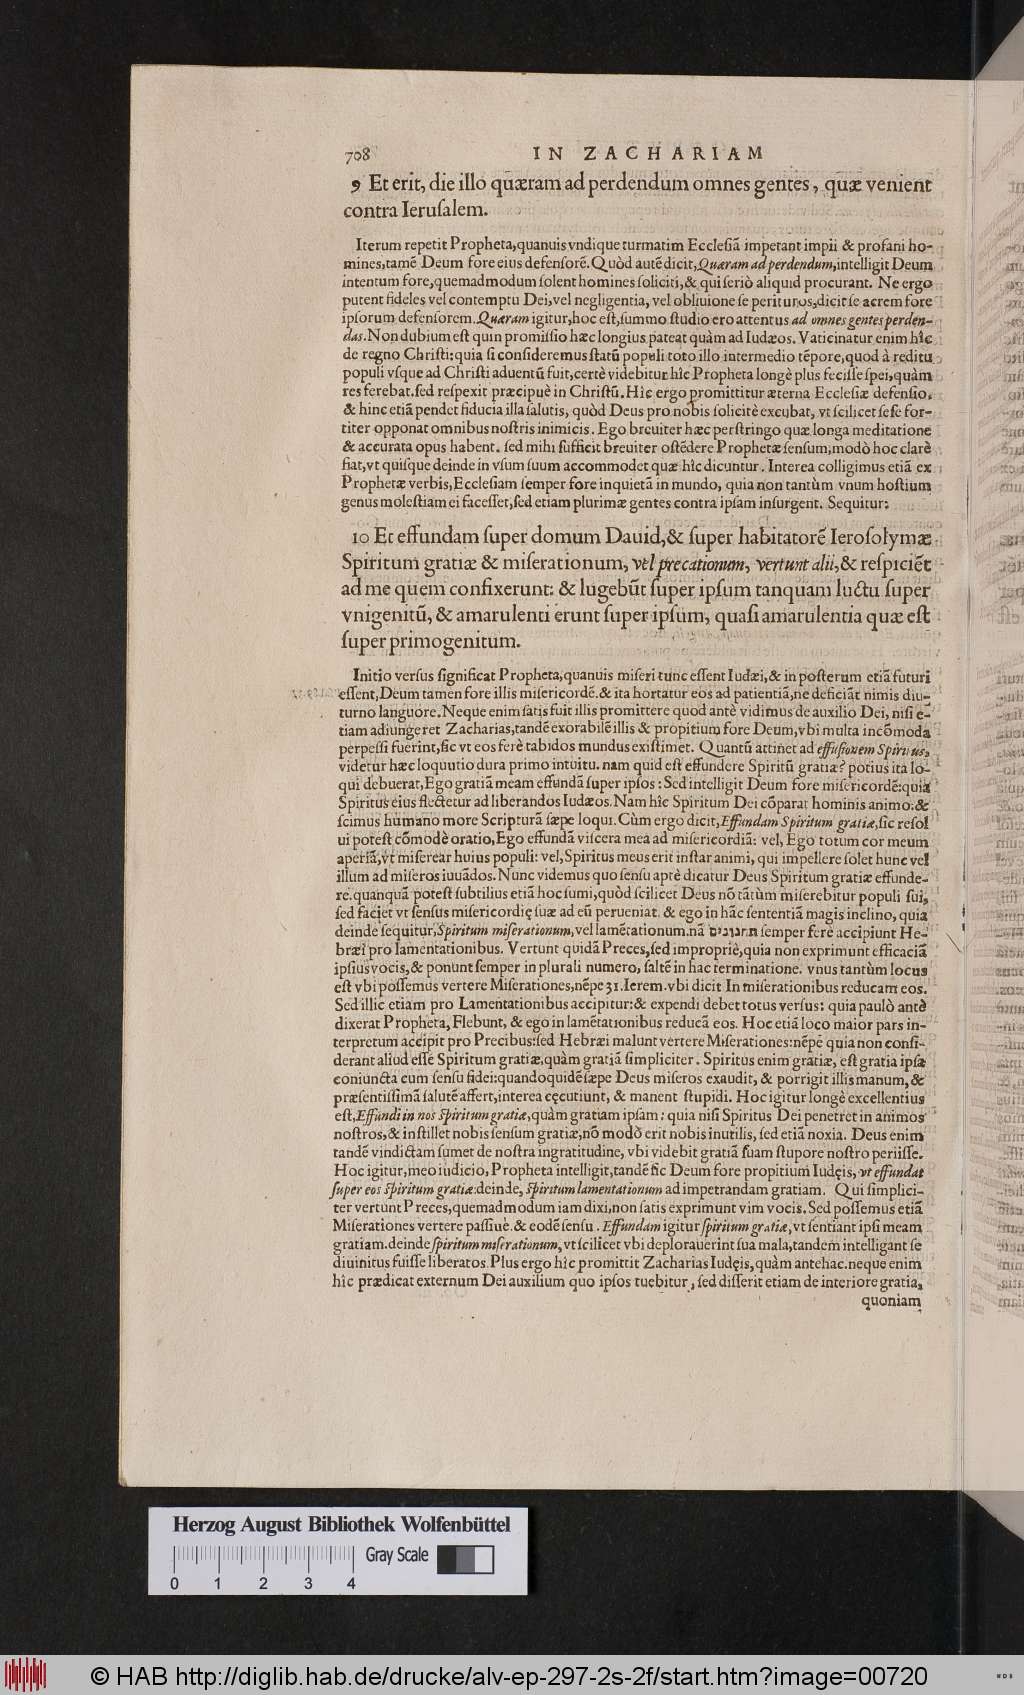 708 IN ZACHARIAM
9 Et erit, die illo quæram ad perdendum omnes gentes, quæ venient
contra Ieruſalem.
Iterum repetit Propheta,quanuis vndique turmatim Eccleſiā impetant impii & profani ho-
mines,tamē Deum fore eius defenſorē. Quòd autē dicit,Quæram ad perdendum,intelligit Deum
intentum fore,quemadmodum ſolent homines ſoliciti,& qui ſeriò aliquid procurant. Ne ergo
putent fideles vel contemptu Dei,vel negligentia, vel obliuione ſe perituros,dicit ſe acrem fore
ipſorum defenſorem. Quæram igitur,hoc eſt,ſummo ſtudio ero attentus ad omnes gentes perden-
das. Non dubium eſt quin promiſſio hæc longius pateat quàm ad Iudæos. Vaticinatur enim hîc
de regno Chriſti:quia ſi conſideremus ſtatū populi toto illo intermedio tēpore,quod à reditu
populi vſque ad Chriſti aduentū fuit,certè videbitur hîc Propheta longè plus feciſſe ſpei,quàm
res ferebat.ſed reſpexit præcipuè in Chriſtū. Hîc ergo promittitur æterna Eccleſiæ defenſio.
& hinc etiā pendet fiducia illa ſalutis, quòd Deus pro nobis ſolicitè excubat, vt ſcilicet ſeſe for-
titer opponat omnibus noſtris inimicis. Ego breuiter hæc perſtringo quæ longa meditatione
& accurata opus habent. ſed mihi ſufficit breuiter oſtēdere Prophetæ ſenſum,modò hoc clarè
fiat,vt quiſque deinde in vſum ſuum accommodet quæ hîc dicuntur. Interea colligimus etiā ex
Prophetæ verbis,Eccleſiam ſemper fore inquietā in mundo, quia non tantùm vnum hoſtium
genus moleſtiam ei faceſſet,ſed etiam plurimæ gentes contra ipſam inſurgent. Sequitur:
10 Et effundam ſuper domum Dauid,& ſuper habitatorē Ieroſolymæ
Spiritum gratiæ & miſerationum, vel precationum, vertunt alii,& reſpiciēt
ad me quem confixerunt: & lugebūt ſuper ipſum tanquam luctu ſuper
vnigenitū, & amarulenti erunt ſuper ipſum, quaſi amarulentia quæ eſt
ſuper primogenitum.
Initio verſus ſignificat Propheta,quanuis miſeri tunc eſſent Iudæi,& in poſterum etiā futuri
eſſent,Deum tamen fore illis miſericordē.& ita hortatur eos ad patientiā,ne deficiāt nimis diu-
turno languore. Neque enim ſatis fuit illis promittere quod antè vidimus de auxilio Dei, niſi e-
tiam adiungeret Zacharias,tandē exorabilē illis & propitium fore Deum,vbi multa incōmoda
perpeſſi fuerint,ſic vt eos ferè tabidos mundus exiſtimet. Quantū attinet ad effuſionem Spiritus,
videtur hæc loquutio dura primo intuitu. nam quid eſt effundere Spiritū gratiæ? potius ita lo-
qui debuerat,Ego gratiā meam effundā ſuper ipſos : Sed intelligit Deum fore miſericordē:quia
Spiritus eius flectetur ad liberandos Iudæos. Nam hîc Spiritum Dei cōparat hominis animo:&
ſcimus humano more Scripturā ſæpe loqui. Cùm ergo dicit,Effundam Spiritum gratiæ,ſic reſol
ui poteſt cōmodè oratio,Ego effundā viſcera mea ad miſericordiā: vel, Ego totum cor meum
aperiā,vt miſerear huius populi: vel,Spiritus meus erit inſtar animi, qui impellere ſolet hunc vel
illum ad miſeros iuuādos. Nunc videmus quo ſenſu aptè dicatur Deus Spiritum gratiæ effunde-
re.quanquā poteſt ſubtilius etiā hoc ſumi,quòd ſcilicet Deus nō tātùm miſerebitur populi ſui,
ſed faciet vt ſenſus miſericordię ſuæ ad eū perueniat. & ego in hāc ſententiā magis inclino, quia
deinde ſequitur,Spiritum miſerationum,vel lamētationum.nā תחנונים ſemper ferè accipiunt He-
bræi pro lamentationibus. Vertunt quidā Preces,ſed impropriè,quia non exprimunt efficaciā
ipſius vocis,& ponunt ſemper in plurali numero, ſaltē in hac terminatione. vnus tantùm locus
eſt vbi poſſemus vertere Miſerationes,nēpe 31.Ierem.vbi dicit In miſerationibus reducam eos.
Sed illic etiam pro Lamentationibus accipitur:& expendi debet totus verſus: quia paulò antè
dixerat Propheta, Flebunt, & ego in lamētationibus reducā eos. Hoc etiā loco maior pars in-
terpretum accipit pro Precibus:ſed Hebræi malunt vertere Miſerationes:nēpe quia non conſi-
derant aliud eſſe Spiritum gratiæ,quàm gratiā ſimpliciter. Spiritus enim gratiæ, eſt gratia ipſa
coniuncta cum ſenſu fidei:quandoquidē ſæpe Deus miſeros exaudit, & porrigit illis manum,&
præſentiſſimā ſalutē affert,interea cęcutiunt, & manent ſtupidi. Hoc igitur longè excellentius
eſt,Effundi in nos ſpiritum gratiæ,quàm gratiam ipſam : quia niſi Spiritus Dei penetret in animos
noſtros,& inſtillet nobis ſenſum gratiæ,nō modò erit nobis inutilis, ſed etiā noxia. Deus enim
tandē vindictam ſumet de noſtra ingratitudine, vbi videbit gratiā ſuam ſtupore noſtro periiſſe.
Hoc igitur,meo iudicio, Propheta intelligit,tandē ſic Deum fore propitium Iudęis, vt effundat
ſuper eos ſpiritum gratiæ:deinde, ſpiritum lamentationum ad impetrandam gratiam. Qui ſimplici-
ter vertunt Preces,quemadmodum iam dixi,non ſatis exprimunt vim vocis. Sed poſſemus etiā
Miſerationes vertere paſſiuè.& eodē ſenſu. Effundam igitur ſpiritum gratiæ,vt ſentiant ipſi meam
gratiam.deinde ſpiritum miſerationum,vt ſcilicet vbi deplorauerint ſua mala,tandem intelligant ſe
diuinitus fuiſſe liberatos. Plus ergo hîc promittit Zacharias Iudęis,quàm antehac.neque enim
hîc prædicat externum Dei auxilium quo ipſos tuebitur, ſed diſſerit etiam de interiore gratia,
quoniam
Herzog August Bibliothek Wolfenbüttel
Gray Scale
0 1 2 3 4
© HAB http://diglib.hab.de/drucke/alv-ep-297-2s-2f/start.htm?image=00720
WDB